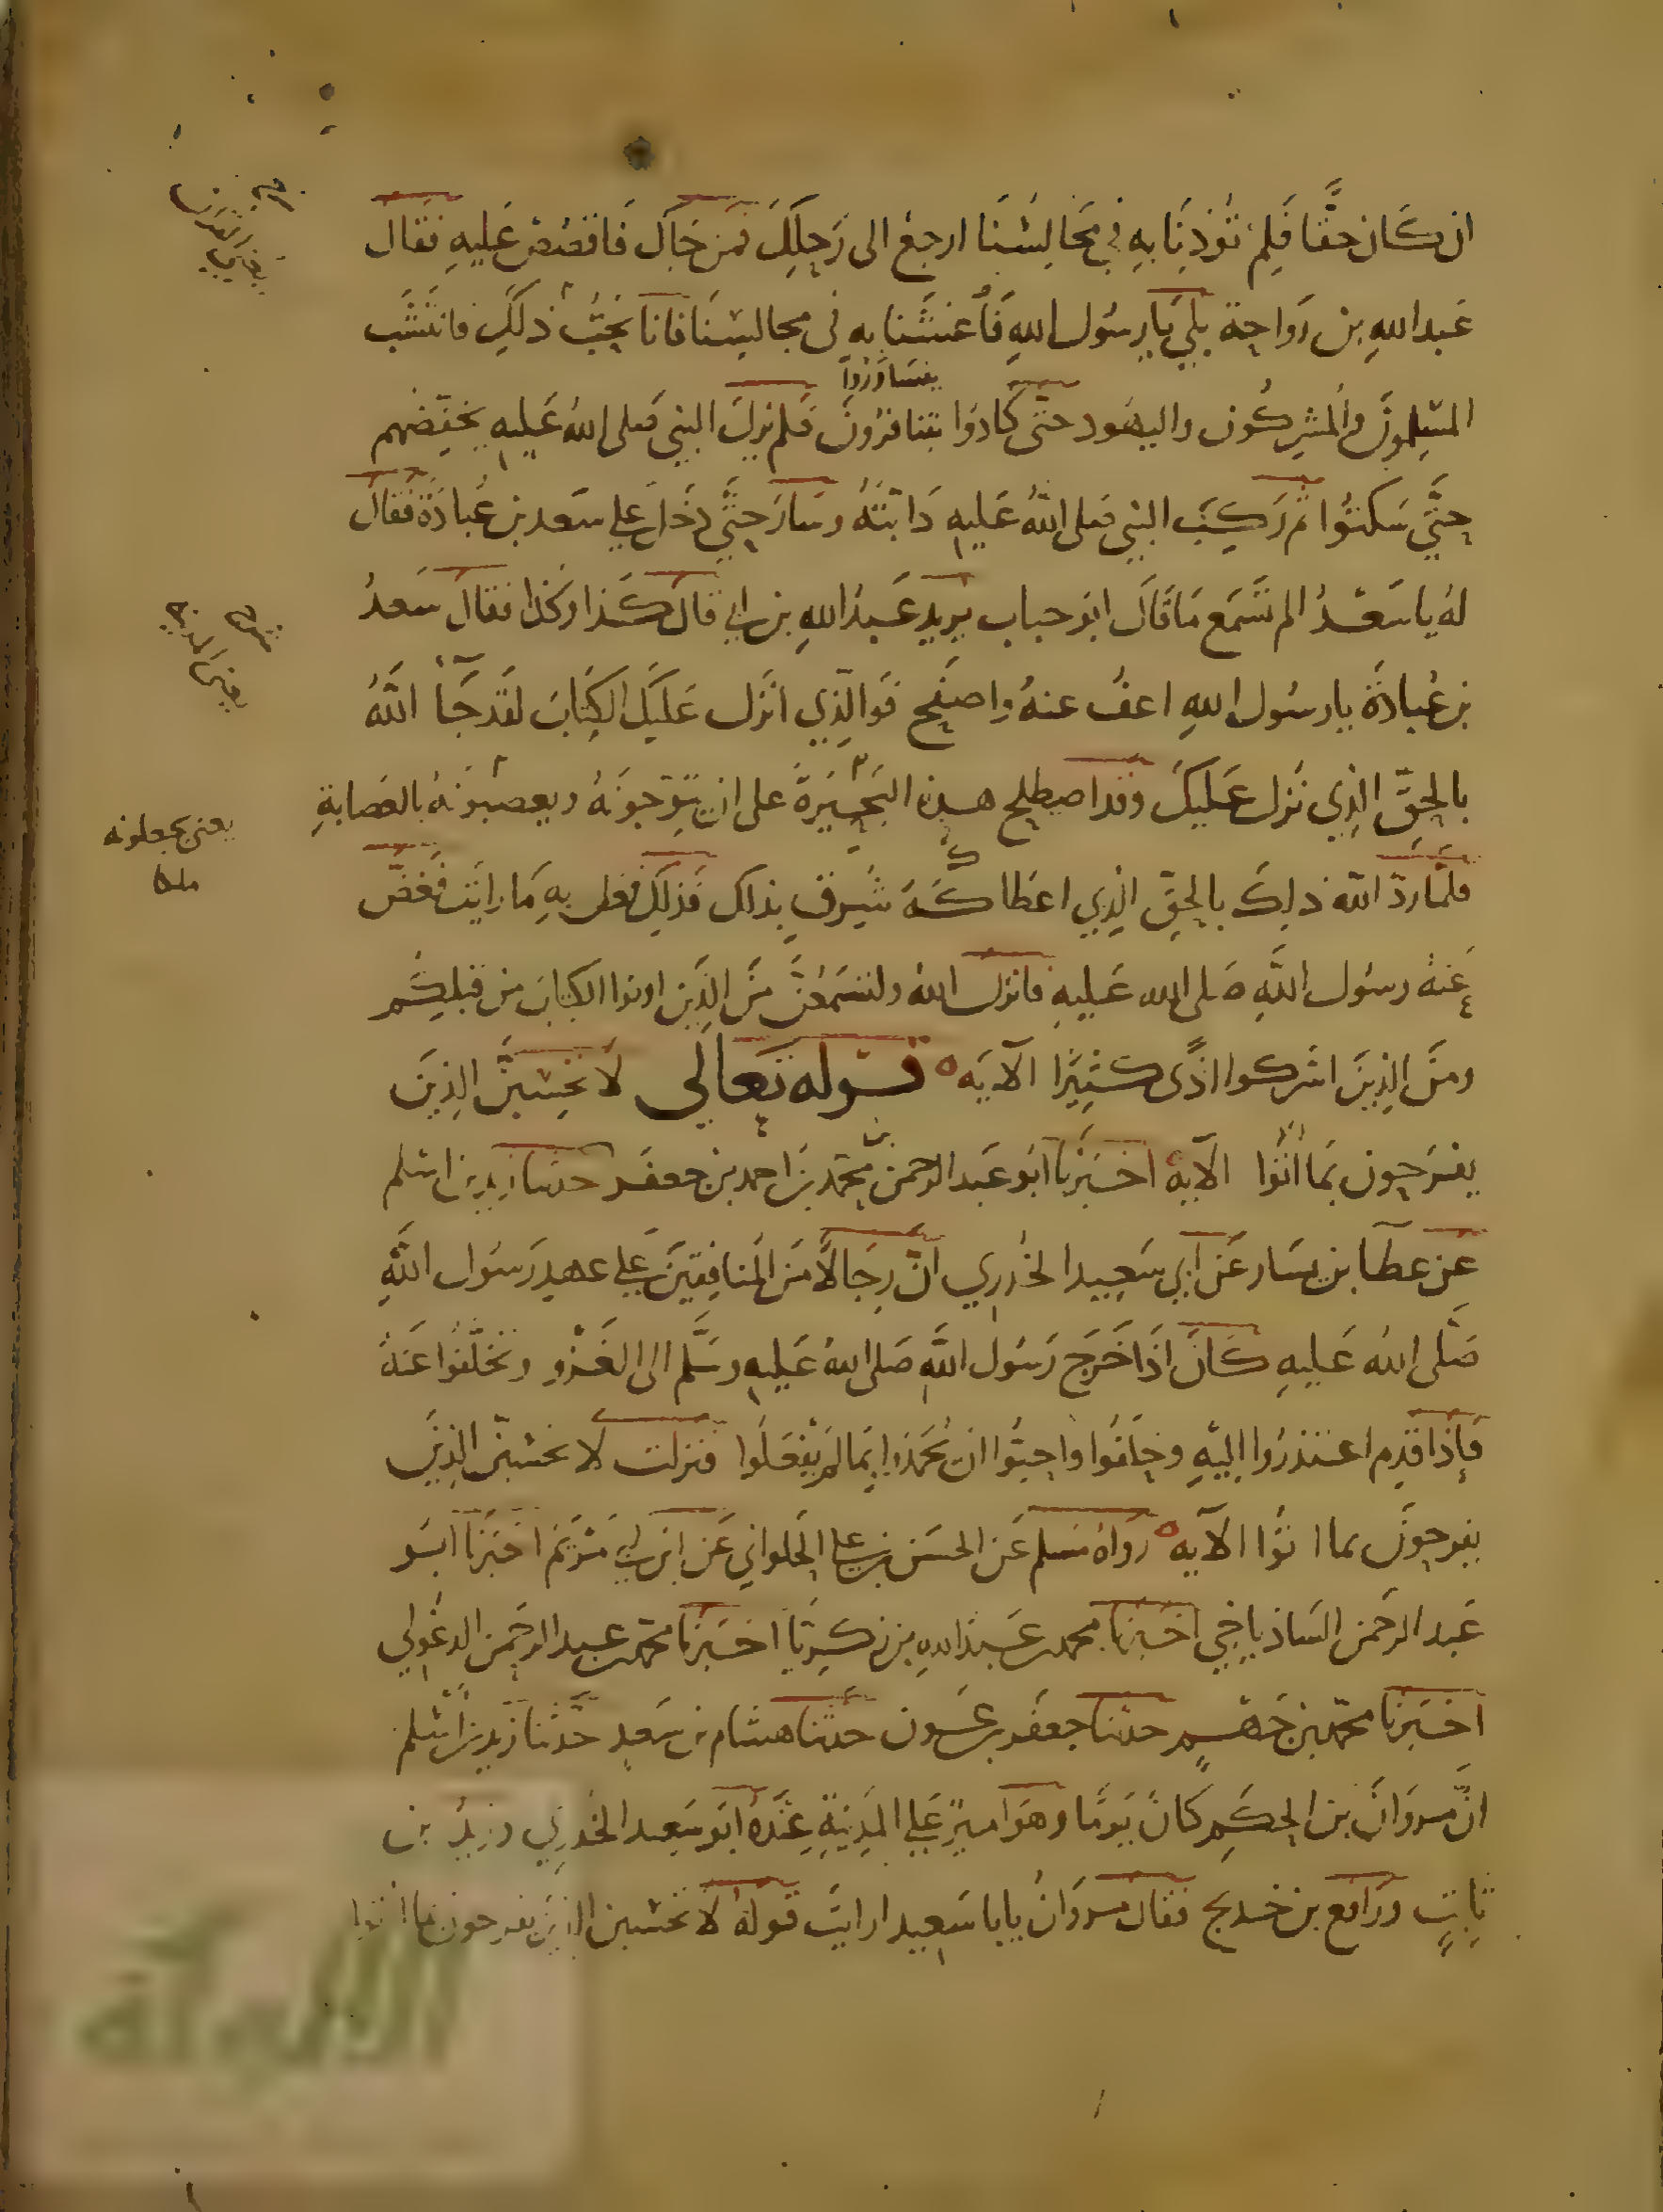 ان كَان حقّا فَلِمَ تُؤذِنَا بِهِ فِي مَجَالِسْنَا ارجعْ الى رَحِلِكَ فَمَن جَاكَ فَاقصُصْ عَليهِ فقَالَ
عَبدالله بن رَواحة بَلَي يَا رسُول اللهِ فَأغشَنَا بهِ فى مجالسِنَا فانا نُحِبُّ ذلكَ فاستَبَّ
المسْلمونَ والمشركُون واليهُود حتّى كَادوُا يتثاورُونَ فَلم يزلْ النبي صلى الله عَليه يخفِّضُهم
يتسَاوَرُوا
حتَّى سَكنُوا ثم رَكِبَ النبي صلى اللهُ عَليهِ دَابَتَهُ وسَارَ حتَّى دَخَل علي سَعد بن عُبادَة فقَالَ
لهُ يا سَعْدُ الم تسْمَع مَا قَالَ ابوُ حباب يريد عَبدُ اللهِ بن ابي قالَ كَذا وكذا فقالَ سَعدُ
بن عُبادَة يا رسُول اللهِ اعفُ عنهُ واصفَح فَوالَّذِي انزَل عَليكَ الكِتابَ لقَد جَآ اللَّهُ
بالحقِّ الذِي نَزل عَليكَ وقد اصطلح هذه البُحَيْرَة على ان يتوّجونَهُ ويعصّبونَهُ بالعصَابةِ
يعنى يجعلونه
ملكا
فلمّا ردّ اللّه ذلكَ بالحقّ الّذِي اعطاكَهُ شرِقَ بذلكَ فذلكَ فعل بهِ مَا رايَت فعَفَى
عَنهُ رسُول اللَّهِ صَلى الله عَليهِ فانزل اللهُ ولتسْمَعُنَّ منَ الذِين اوتوا الكتابَ من قبلِكُم
ومنَ الذِينَ اشركوا اذًى كثيْرًا الآيَه قوله تعالى لا تحْسَبَنَّ الذِينَ
يفرَحون بمَا اتَوا الآيه اخبَرنا ابو عَبد الرحمن بن محمّد بن احمد بن جعفَر حدثنا زيد بن اسْلم
عن عطآ بن يسَار عَن ابي سَعيد الخُدرِي انّ رِجَالًا منَ المُنافقِينَ علَي عهدِ رَسُول اللهِ
صَلى اللهُ عَليهِ كَانَ اذَا خَرَجَ رَسُول اللَّهِ صَلى اللهُ عَليهِ وسَلَّم الى الغَزْوِ وتخلّفُوا عَنهُ
فَإذَا قدِم اعتذرُوا اليْهِ وحلفُوا واحبّوا ان يُحْمَدُوا بمَا لمْ يفْعَلُوا فنزلت لا تحسْبنّ الذِينَ
يفرحونَ بما اتوا الآيه رَواهُ مسلم عَن الحسَن بن علي الحلواني عَن ابن ابي مَرْيَم اخبَرنَا ابو
عَبد الرَحمن الشاذياخي اخبَرنا محمد بن عَبد الله بن زكريّا اخبَرنا محمّد بن عبد الرحمن الدغولي
اخبَرنا محمّد بن جَهْم حدثنا جعفر بن عَون حدثنا هشَام بن سَعيد حدّثنا زيد بن اسْلم
انّ مروَانَ بن الحكَم كَانَ يَومًا وهوَ اميرٌ عَلي المدِينَةِ عِنْدَهُ ابو سَعيد الخُدْرِي وزيدُ بن
ثابِتٍ ورَافع بن خديج فقال مروَانُ يا با سَعيد ارايتَ قولهُ لا تحسْبنّ الذِينَ يفرحون بما اتوا